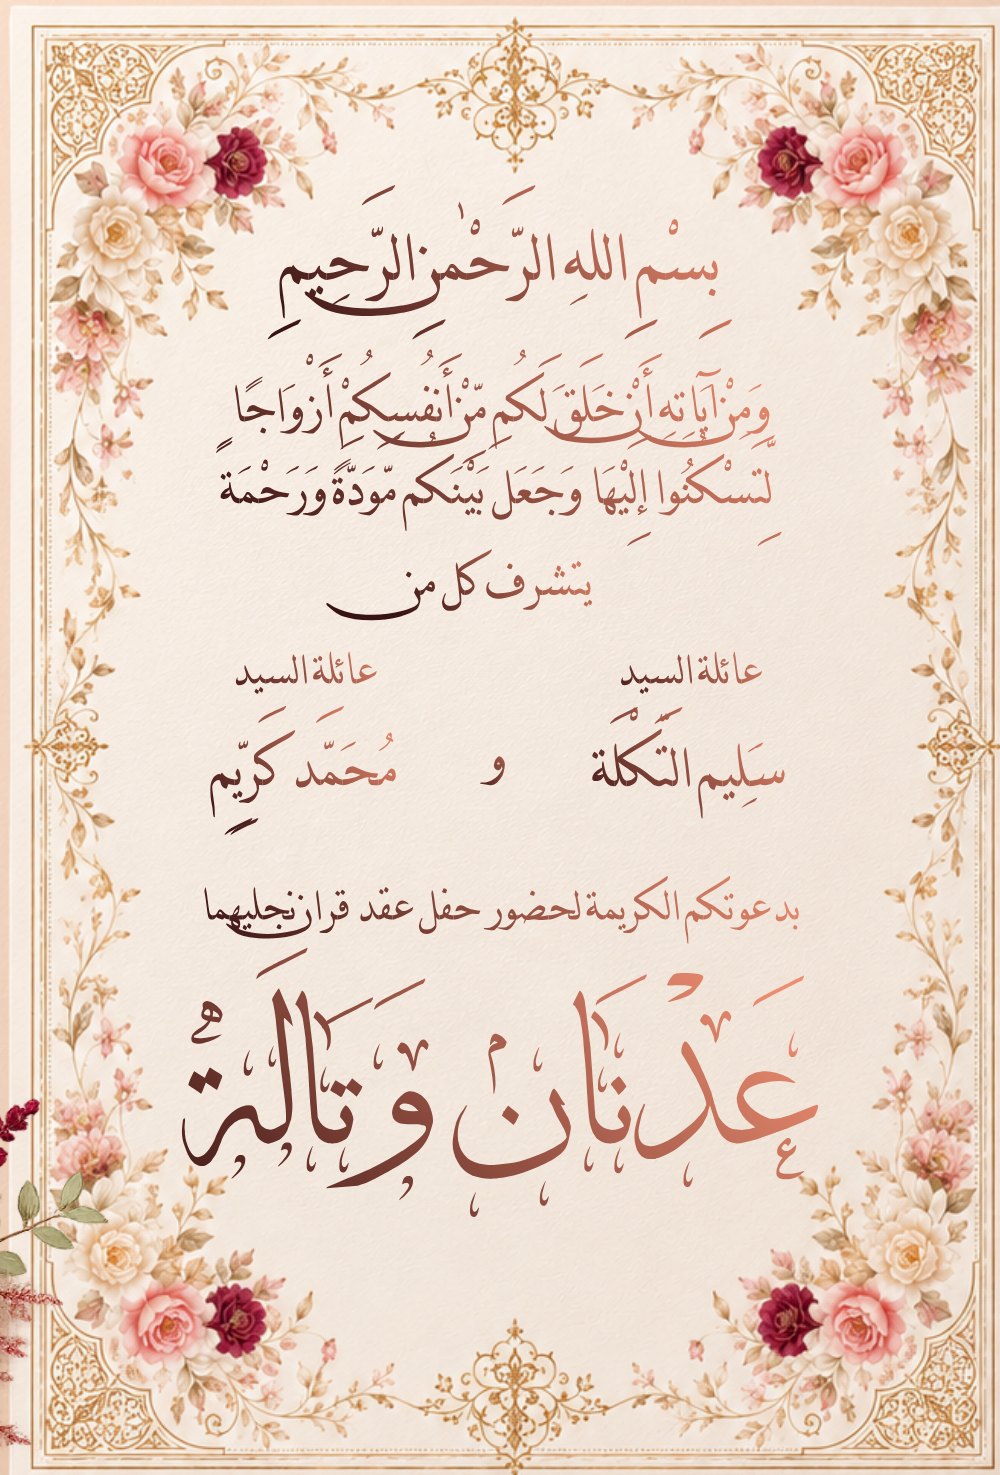 بِسْمِ اللهِ الرَّحْمٰنِ الرَّحِيمِ
وَمِنْ آيَاتِهِ أَنْ خَلَقَ لَكُم مِّنْ أَنفُسِكُمْ أَزْوَاجًا
لِّتَسْكُنُوا إِلَيْهَا وَجَعَلَ بَيْنَكُم مَّوَدَّةً وَرَحْمَةً
يتشرف كل من
عائلة السيد
سَلِيم التَّكْلَة
و
عائلة السيد
مُحَمَّد كَرِيِّم
بدعوتكم الكريمة لحضور حفل عقد قران نجليهما
عَدْنَان وَتَالَة